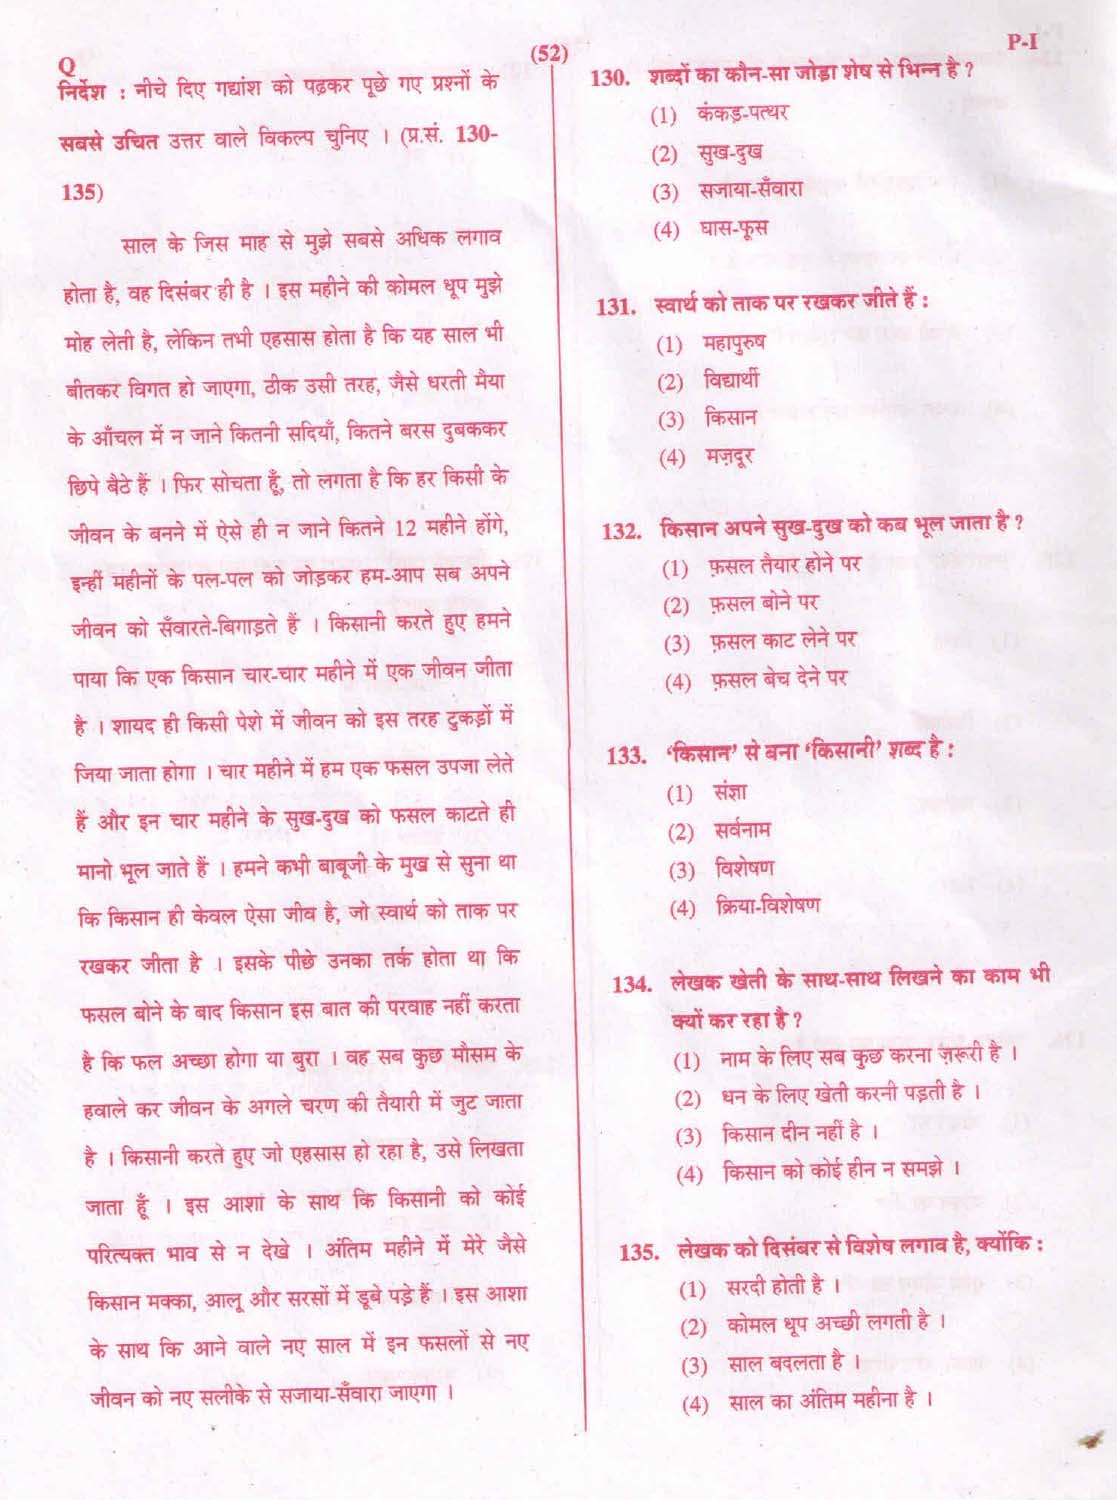 Q
(52)
P-I
निर्देश : नीचे दिए गद्यांश को पढ़कर पूछे गए प्रश्नों के
सबसे उचित उत्तर वाले विकल्प चुनिए । (प्र.सं. 130-
135)
साल के जिस माह से मुझे सबसे अधिक लगाव
होता है, वह दिसंबर ही है । इस महीने की कोमल धूप मुझे
मोह लेती है, लेकिन तभी एहसास होता है कि यह साल भी
बीतकर विगत हो जाएगा, ठीक उसी तरह, जैसे धरती मैया
के आँचल में न जाने कितनी सदियाँ, कितने बरस दुबककर
छिपे बैठे हैं । फिर सोचता हूँ, तो लगता है कि हर किसी के
जीवन के बनने में ऐसे ही न जाने कितने 12 महीने होंगे,
इन्हीं महीनों के पल-पल को जोड़कर हम-आप सब अपने
जीवन को सँवारते-बिगाड़ते हैं । किसानी करते हुए हमने
पाया कि एक किसान चार-चार महीने में एक जीवन जीता
है । शायद ही किसी पेशे में जीवन को इस तरह टुकड़ों में
जिया जाता होगा । चार महीने में हम एक फसल उपजा लेते
हैं और इन चार महीने के सुख-दुख को फसल काटते ही
मानो भूल जाते हैं । हमने कभी बाबूजी के मुख से सुना था
कि किसान ही केवल ऐसा जीव है, जो स्वार्थ को ताक पर
रखकर जीता है । इसके पीछे उनका तर्क होता था कि
फसल बोने के बाद किसान इस बात की परवाह नहीं करता
है कि फल अच्छा होगा या बुरा । वह सब कुछ मौसम के
हवाले कर जीवन के अगले चरण की तैयारी में जुट जाता
है । किसानी करते हुए जो एहसास हो रहा है, उसे लिखता
जाता हूँ । इस आशा के साथ कि किसानी को कोई
परित्यक्त भाव से न देखे । अंतिम महीने में मेरे जैसे
किसान मक्का, आलू और सरसों में डूबे पड़े हैं । इस आशा
के साथ कि आने वाले नए साल में इन फसलों से नए
जीवन को नए सलीके से सजाया-सँवारा जाएगा ।
130. शब्दों का कौन-सा जोड़ा शेष से भिन्न है ?
(1) कंकड़-पत्थर
(2) सुख-दुख
(3) सजाया-सँवारा
(4) घास-फूस
131. स्वार्थ को ताक पर रखकर जीते हैं :
(1) महापुरुष
(2) विद्यार्थी
(3) किसान
(4) मज़दूर
132. किसान अपने सुख-दुख को कब भूल जाता है ?
(1) फ़सल तैयार होने पर
(2) फ़सल बोने पर
(3) फ़सल काट लेने पर
(4) फ़सल बेच देने पर
133. ‘किसान’ से बना ‘किसानी’ शब्द है :
(1) संज्ञा
(2) सर्वनाम
(3) विशेषण
(4) क्रिया-विशेषण
134. लेखक खेती के साथ-साथ लिखने का काम भी
क्यों कर रहा है ?
(1) नाम के लिए सब कुछ करना ज़रूरी है ।
(2) धन के लिए खेती करनी पड़ती है ।
(3) किसान दीन नहीं है ।
(4) किसान को कोई हीन न समझे ।
135. लेखक को दिसंबर से विशेष लगाव है, क्योंकि :
(1) सरदी होती है ।
(2) कोमल धूप अच्छी लगती है ।
(3) साल बदलता है ।
(4) साल का अंतिम महीना है ।